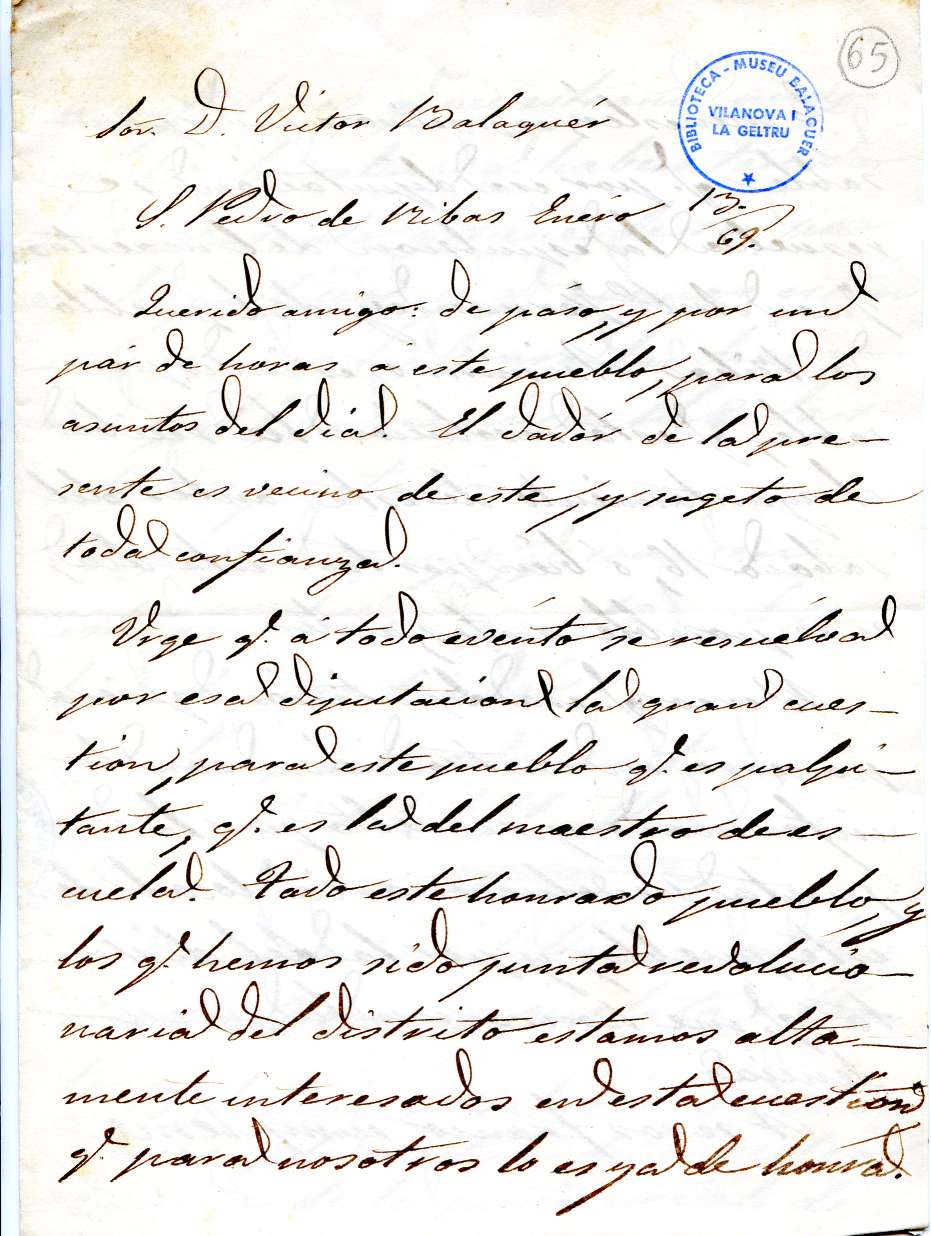 65
BIBLIOTECA - MUSEU BALAGUER
VILANOVA I
LA GELTRU
Sor. D. Victor Balaguér
S. Pedro de Ribas Enéro 13./69.
Querido amigo: de páso, y por un
pár de horas á este pueblo, para los
asuntos del dia. El dadór de la pre-
sente es vecino de este, y sugeto de
toda confianza.
Urge q.e á todo evénto se resuélva
por esa diputacion la gran cues-
tion, para este pueblo q.e es palpi-
tante, q.e es la del maestro de es-
cuela. Todo este honrado pueblo, y
los q.e hemos sido junta revolucio-
naria del distrito estamos alta-
mente interesados en esta cuestion
q.e para nosotros lo es ya de honra.